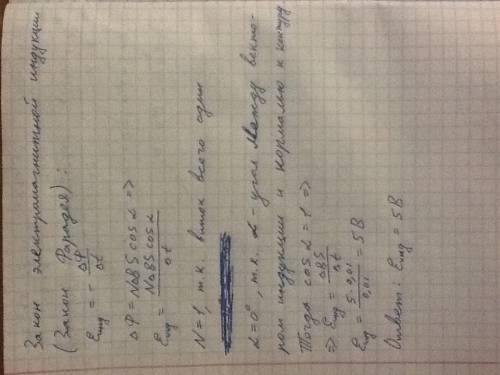 Закон электромагнитной индукции
(Закон Фарадея):
Eинд = - ΔФ/Δt
ΔФ = NΔBS cos α =>
Eинд = NΔBS cos α/Δt
N=1, т.к. виток всего один
α=0°, т.к. α - угол между векто-
ром индукции и нормалью к контуру
Тогда cos α = 1 =>
=> Eинд = ΔBS/Δt
Eинд = 5·0,01/0,01 = 5В
Ответ: Eинд = 5В